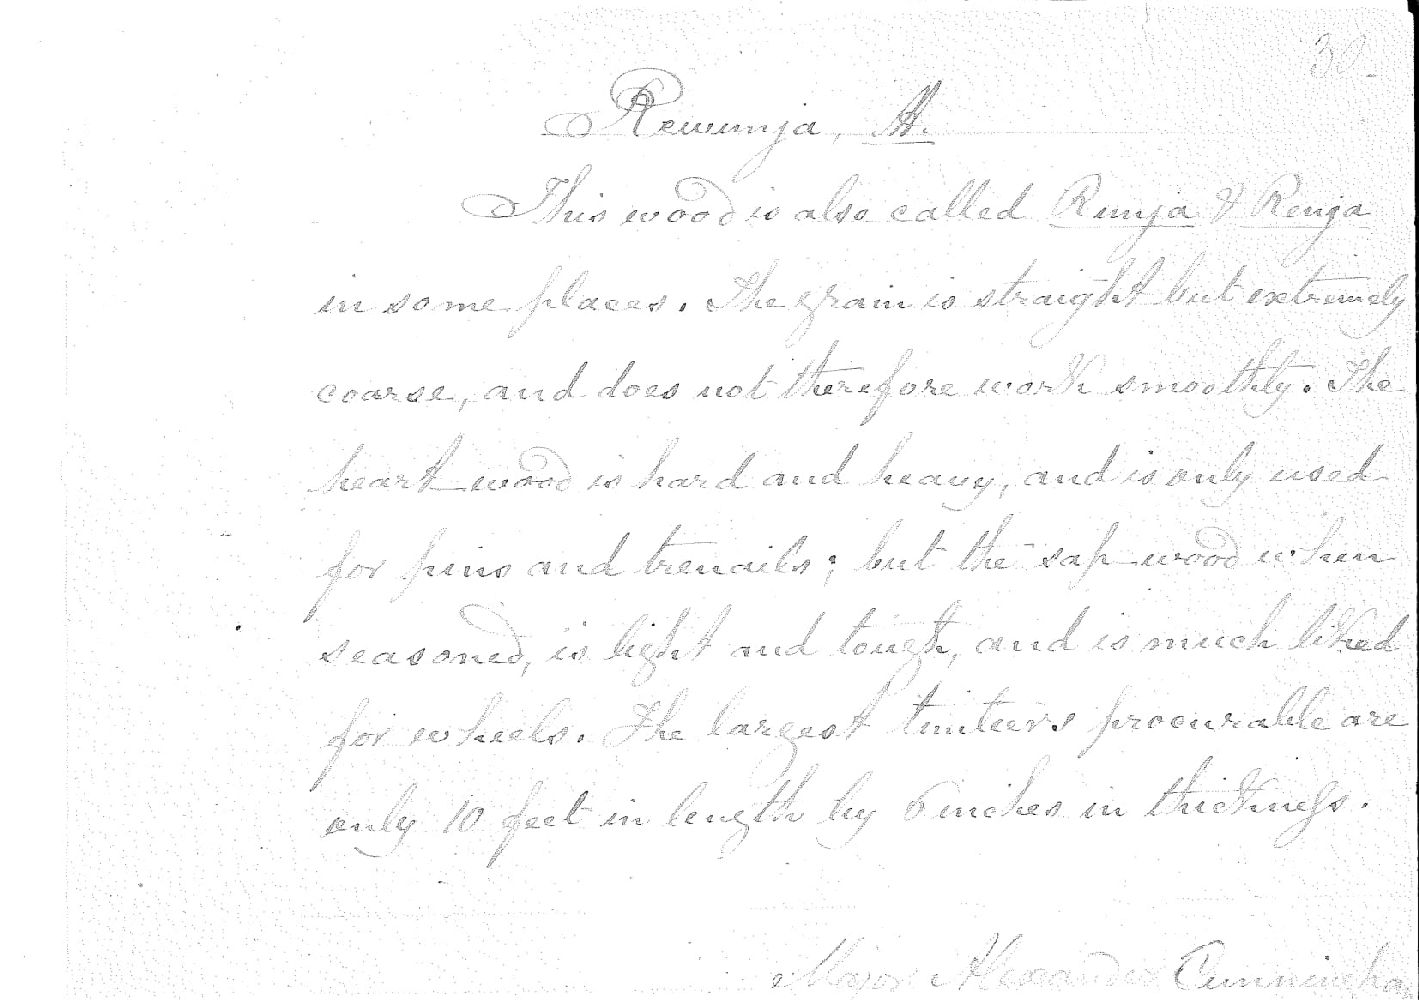 Rewunja, H.
This wood is also called Runja & Renja
in some places. The grain is straight but extremely
coarse, and does not therefore work smoothly. The
heart wood is hard and heavy, and is only used
for pins and trenails; but the sap wood when
seasoned, is light and tough, and is much liked
for wheels. The largest timbers procurable are
only 10 feet in length by 6 inches in thickness.
Major Alexander Cunningha